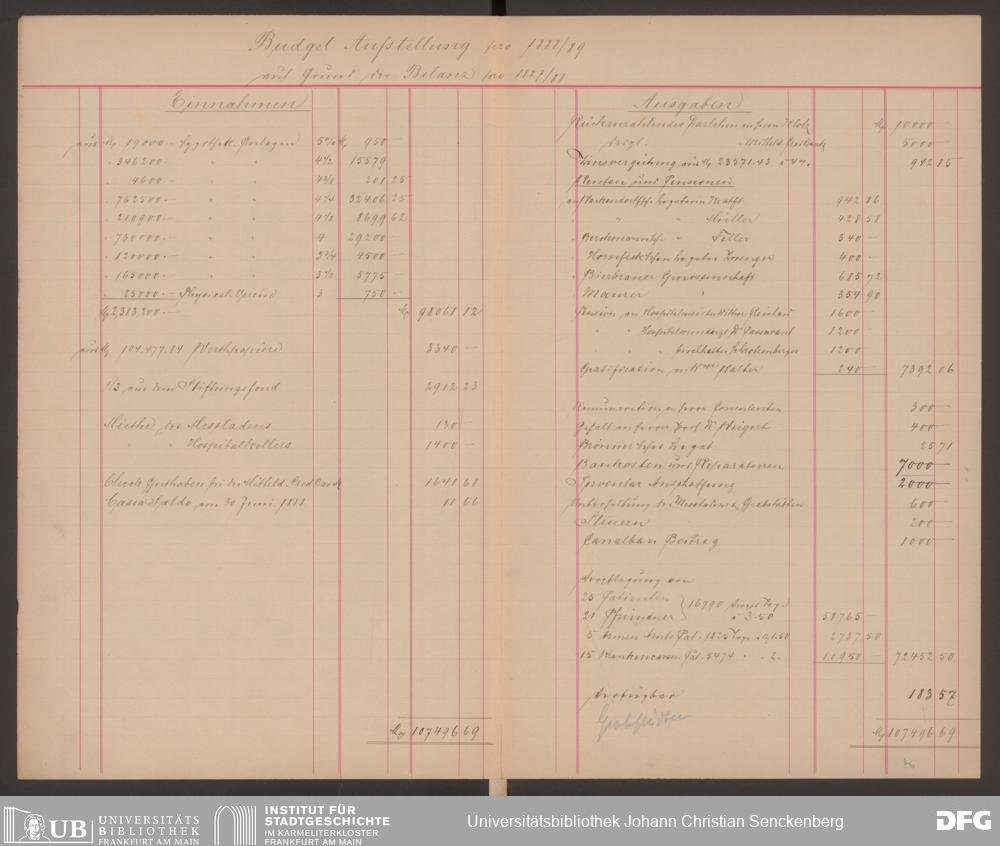 Budget Aufstellung pro 1888/89
auf Grund der Bilanz pro 1887/88
Einnahmen
aus M 19000.- Hypothek. Anlagen 5% M 950 -
" 346200.- " " 4½ 15579 -
" 4600.- " " 4⅜ 201 25
" 762500.- " " 4¼ 32406 25
" 210900.- " " 4⅛ 8699 62
" 730000.- " " 4 29200 -
" 120000.- " " 3¾ 4500 -
" 165000.- " " 3½ 5775 -
" 25000.- Physical. Verein 3 750 -
M 2,383,200.- M 98061 12
aus M 104.477.84 Werthpapiere 3340 -
1/3 aus dem Stiftungsfond 2912 23
Miethe des Messladens 130 -
" " Hospitalkellers 1400 -
Check Guthaben bei der Mitteld. Cred. Bank 1641 68
Cassa Saldo am 30 Juni 1888 11 66
M 107496 69
Ausgaben
Rückzuzahlendes Darlehen an Herrn Klotz M 10000 -
desgl. " Mitteld. Cred. Bank 5000 -
Zinsvergütung aus M 23571.43 à 4% 942 85
Renten und Pensionen
an Legatarin Krafft 942 86
" " Müller 428 58
" " Feller 340 -
" 400 -
" Bierbrauer Genossenschaft 685 72
" Maurer " 354 90
Pension an Hospitalmeisters Wittwe Reichard 1600 -
" " Dr Passavant 1200 -
" " 1200
Gratification an Walter 240 - 7392 06
Remuneration an Herrn Consulenten 300 -
Gehalt an Herrn Prof Dr Weigert 400 -
Brönner'sches Legat 25 71
Baukosten und Reparaturen 7000 -
Inventar Anschaffung 2000 -
Unterhaltung des Messladens & Grabstätten 600 -
Steuern 200 -
Canalbau Beitrag 1000 -
Verpflegung von
25 Patienten
21 Pfründner } 16790 Verpfl. Tage à 3.50 58765 -
5 Armen Amts Pat. 1825 Tage à 1.50 2737 50
15 Krankencassen Pat. 5474 " " 2.- 10950 - 72452 50
Verfügbar 183 57
Grabstätten
M 107496 69
UB UNIVERSITÄTS
BIBLIOTHEK
FRANKFURT AM MAIN
INSTITUT FÜR
STADTGESCHICHTE
IM KARMELITERKLOSTER
FRANKFURT AM MAIN
Universitätsbibliothek Johann Christian Senckenberg
DFG